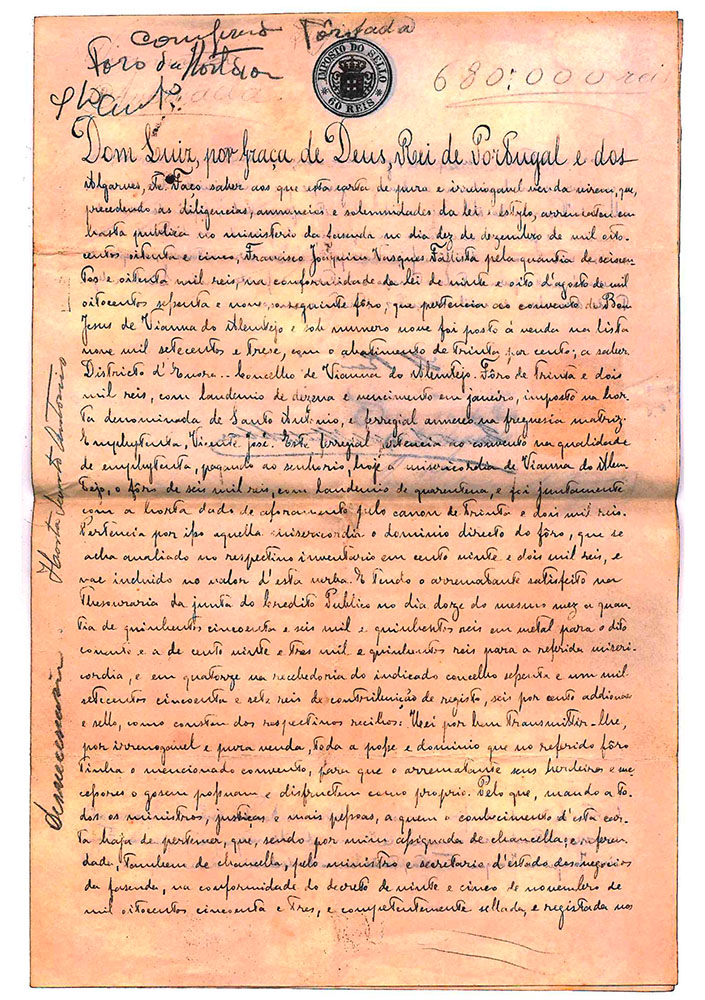 Foro da Horta
IMPOSTO DO SELLO
60 REIS
680:000 reis
Dom Luiz, por Graça de Deus, Rei de Portugal e dos
Algarves, etc. Faço saber aos que esta carta de pura e irrevogavel venda virem, que,
precedendo as diligencias, annuncios e solemnidades da lei e estylo, arrematou em
hasta publica no ministerio da fasenda no dia dez de dezembro de mil oito-
centos oitenta e cinco, Francisco Joaquim Vasques Fallista pela quantia de seiscen-
tos e oitenta mil reis, na conformidade da lei de vinte e oito d'agosto de mil
oitocentos sessenta e nove, o seguinte fôro, que pertencia ao convento de Bom
Jesus de Vianna do Alemtejo e sob numero nove foi posto á venda na lista
nove mil setecentos e treze, com o abatimento de trinta por cento; a saber.
Districto d'Evora.. Concelho de Vianna do Alemtejo. Fôro de trinta e dois
mil reis, com laudemio de dezena e vencimento em janeiro, imposto na hor-
ta denominada de Santo Antonio, e ferregial annexo na freguesia matriz.
Emphyteuta, Vicente José. Este ferregial pertencia ao convento na qualidade
de emphyteuta, pagando ao senhorio, hoje a misericordia de Vianna do Alem-
tejo, o fôro de seis mil reis, com laudemio de quarentena, e foi juntamente
com a horta dado de aforamento pelo canon de trinta e dois mil reis.
Pertencia por isso aquella misericordia o dominio directo do fôro, que se
acha avaliado no respectivo inventario em cento vinte e dois mil reis, e
vae incluido no valor d'esta verba. E tendo o arrematante satisfeito na
Thesouraria da junta do Credito Publico no dia doze do mesmo mez a quan-
tia de quinhentos cincoenta e seis mil e quinhentos reis em metal para o dito
convento e a de cento vinte e tres mil e quinhentos reis para a referida miseri-
cordia, e em quatorze na recebedoria do indicado concelho sessenta e um mil
setecentos cincoenta e sete reis de contribuição de registo, seis por cento addicionaes
e sello, como constam dos respectivos recibos: Hei por bem transmittir-lhe,
por irrevogavel e pura venda, toda a posse e dominio que no referido fôro
tinha o mencionado convento, para que o arrematante seus herdeiros e suc-
cessores o gosem possuam e disfructem como proprio. Pelo que, mando a to-
dos os ministros, justiças e mais pessoas, a quem o conhecimento d'esta car-
ta haja de pertencer, que, sendo por mim assignada de chancella, e referen-
dada, tambem de chancella, pelo ministro e secretario d'estado dos negocios
da fasenda, na conformidade do decreto de vinte e cinco de novembro de
mil oitocentos cincoenta e tres, e competentemente sellada, e registada nos
Horta Santo Antonio